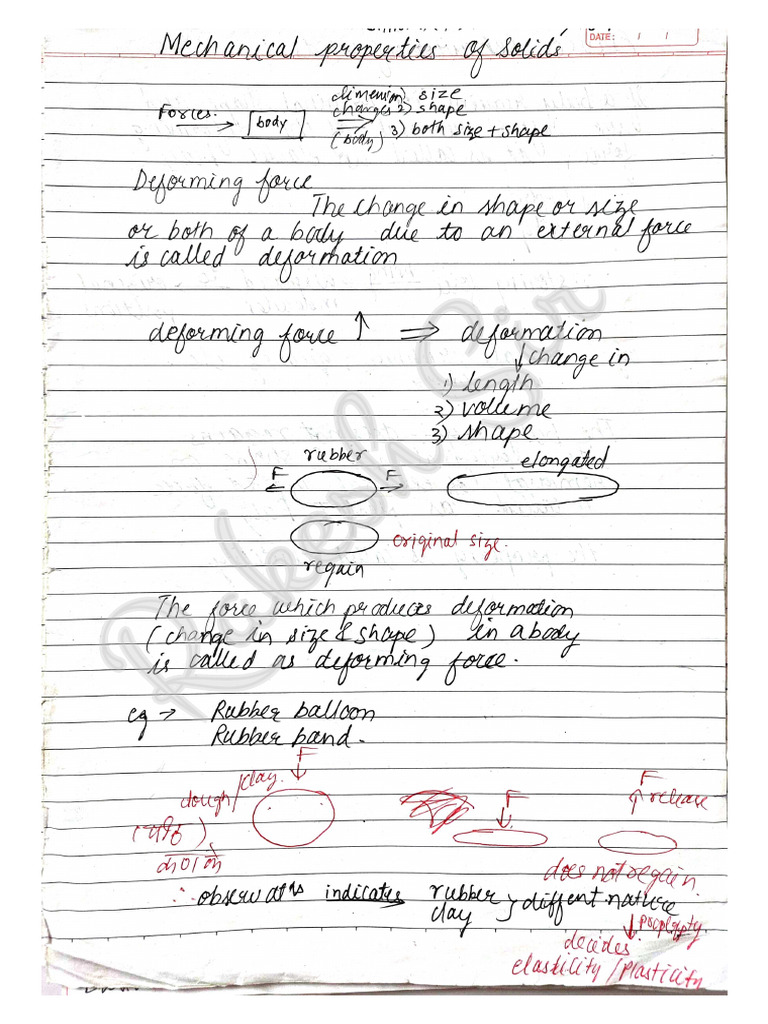 DATE: / /
Mechanical properties of solids
Forces. → body
dimension changes (body)
1) size
2) shape
3) both size + shape
Deforming force
The change in shape or size
or both of a body due to an external force
is called deformation
deforming force ↑ ⇒ deformation
↓ change in
1) length
2) volume
3) shape
rubber
elongated
F F
original size.
regain
The force which produces deformation
(change in size & shape) in a body
is called as deforming force.
eg → Rubber balloon
Rubber band.
F
dough/clay.
F
F
release
does not regain.
∴ observatns indicates rubber
clay } diffent nature
↓
decides
elastility/Plasticity
Rakesh Sir